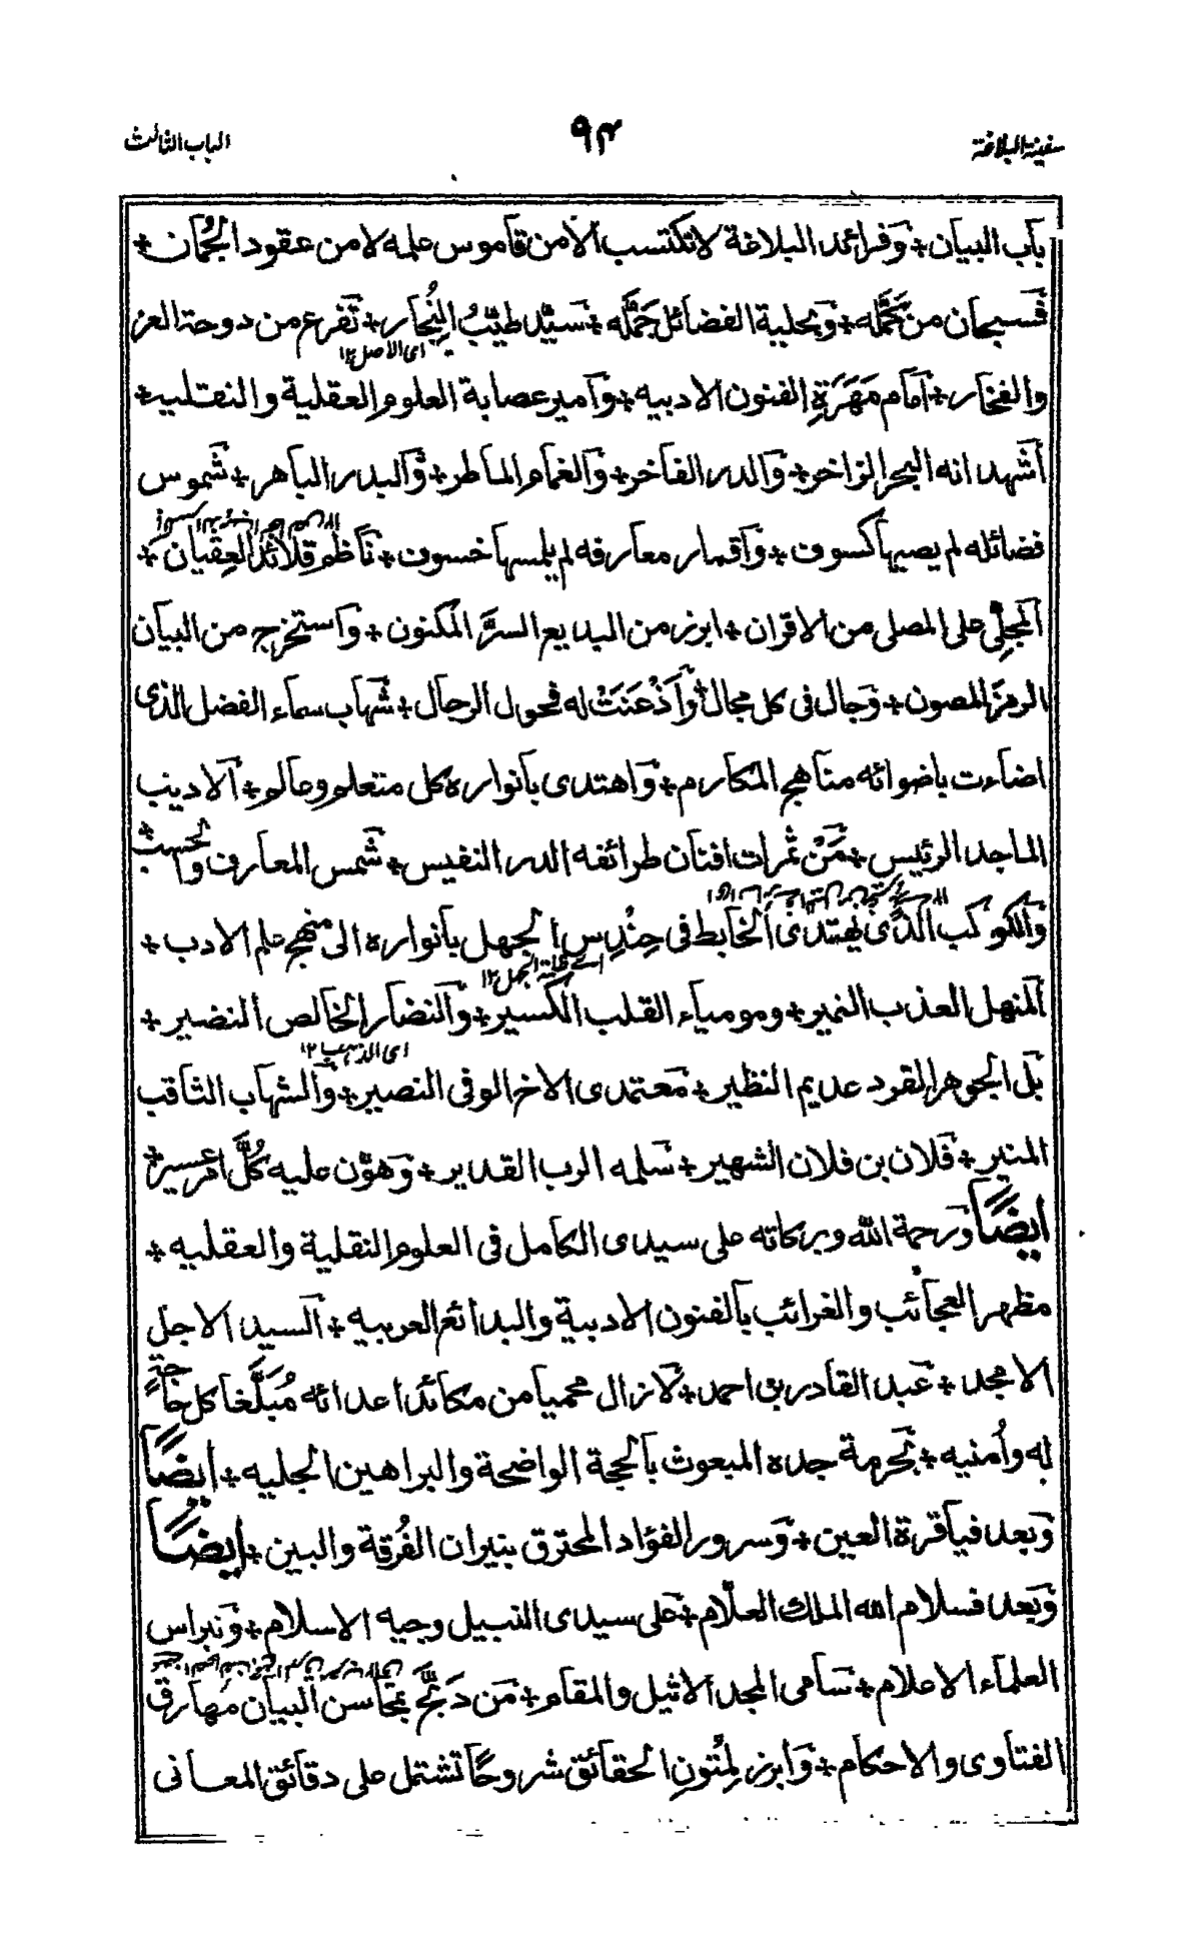 سفينة البلاغة ٩٤ الباب الثالث
باب البيان + وفرائد البلاغة لا تكتسب الا من قاموس علمه لا من عقود الجُمان +
فسبحان من جَمَّله + وبحلية الفضائل جَمَّله + سيّد طيّبُ النِّجار + تفرع من دوحة العز
اى الاصل ١٢
والفخار + امام مَهَرَةِ الفنون الادبيه + وامير عصابة العلوم العقلية والنقليه +
اشهد انه البحر الزاخر + والدر الفاخر + والغمام الماطر + والبدر الباهر + شموس
فضائله لم يصبها كسوف + واقمار معارفه لم يلمسها خسوف + ناظم قلائد العِقيان +
المجلِّى على المصلى من الاقران + ابرز من البديع السرَّ المكنون + واستخرج من البيان
الرمزَ المصون + وجال فى كل مجال + وأَذْعَنَتْ له فحول الرجال + شهاب سماء الفضل الذى
اضاءت باضوائه مناهج المكارم + واهتدى بانواره كل متعلم وعالم + الاديب
الماجد الرئيس + مَنْ ثمرات افنان طرائفه الدر النفيس + شمس المعارف والحسب +
والكوكب الذى يهتدى الخابط فى حِنْدِس الجهل بانواره الى منهج علم الادب +
اے ظلمة الجهل ١٢
المنهل العذب النمير + ومومياء القلب الكسير + والنضار الخالص النضير +
اى الذهب ١٢
بل الجوهر الفرد عديم النظير + معتمدى الاخ الوفى النصير + والشهاب الثاقب
المنير + فلان بن فلان الشهير + سلمه الرب القدير + وهوّن عليه كُلَّ امر عسير +
ايضًا ورحمة الله وبركاته على سيدى الكامل فى العلوم النقلية والعقليه +
مظهر العجائب والغرائب بالفنون الادبية والبدائع العربيه + السيد الاجل
الامجد + عبد القادر بن احمد + لا زال محميا من مكائد اعدائه مُبَلَّغا كل حاجةٍ
له وأُمنيه + بحرمة جده المبعوث بالحجة الواضحة والبراهين الجليه + ايضًا
وبعد فيا قرة العين + وسرور الفؤاد المحترق بنيران الفُرقة والبين + ايضًا
وبعد فسلام الله الملك العلّام + على سيدى النبيل وجيه الاسلام + ونبراس
العلماء الاعلام + سامى المجد الاثيل والمقام + من دَبَّج بمحاسن البيان مَهارق
الفتاوى والاحكام + وابرز لِمُتونِ الحقائق شروحًا تشتمل على دقائق المعانى